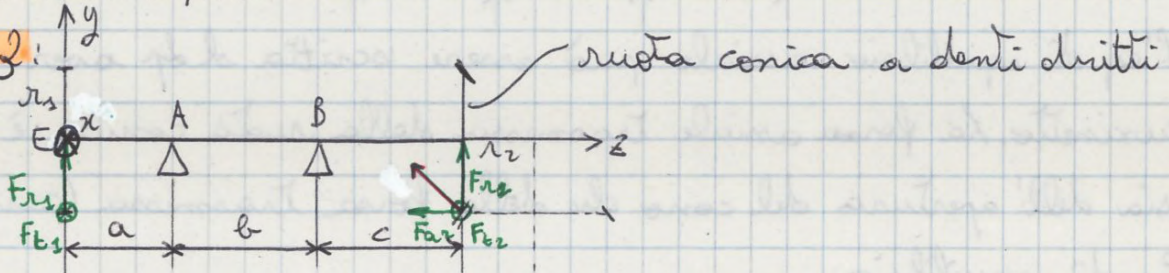 y
3:
ruota conica a denti dritti
r₁
E x A B z
r₂
Fr₁ Fr₂
Ft₁ a b c Fa₂ Ft₂